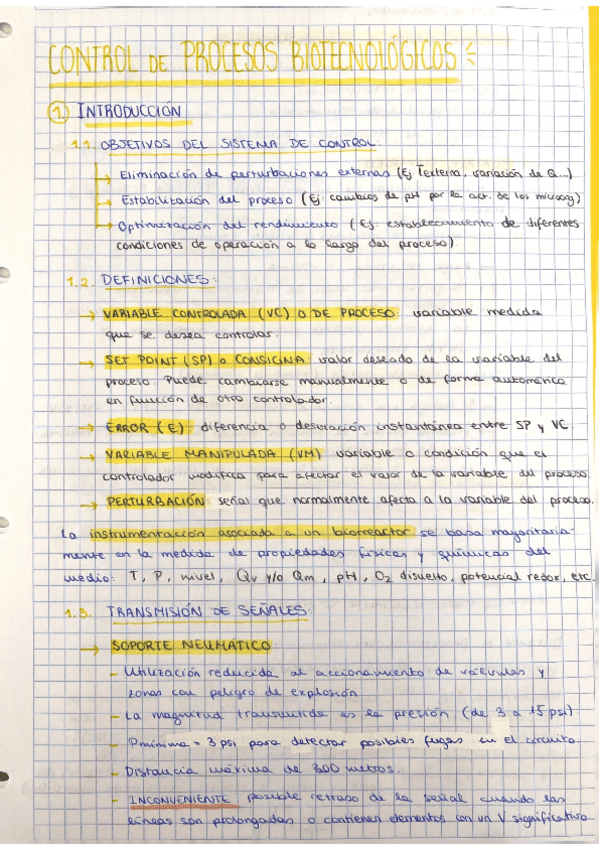 CONTROL DE PROCESOS BIOTECNOLÓGICOS
1. INTRODUCCIÓN
1.1. OBJETIVOS DEL SISTEMA DE CONTROL:
→ Eliminación de perturbaciones externas (Ej Texterna, variación de Q...)
→ Estabilización del proceso (Ej: cambios de pH por la act. de los microorg)
→ Optimización del rendimiento (Ej establecimiento de diferentes
condiciones de operación a lo largo del proceso)
1.2. DEFINICIONES:
→ VARIABLE CONTROLADA (VC) O DE PROCESO: variable medida
que se desea controlar.
→ SET POINT (SP) o CONSIGNA: valor deseado de la variable del
proceso. Puede cambiarse manualmente o de forma automática
en función de otro controlador.
→ ERROR (E): diferencia o desviación instantánea entre SP y VC.
→ VARIABLE MANIPULADA (VM): variable o condición que el
controlador modifica para afectar el valor de la variable del proceso.
→ PERTURBACIÓN: señal que normalmente afecta a la variable del proceso.
La instrumentación asociada a un biorreactor se basa mayoritaria-
mente en la medida de propiedades físicas y químicas del
medio: T, P, nivel, Qv y/o Qm, pH, O2 disuelto, potencial redox, etc.
1.3. TRANSMISIÓN DE SEÑALES:
→ SOPORTE NEUMÁTICO
- Utilización reducida al accionamiento de válvulas y
zonas con peligro de explosión
- La magnitud transmitida es la presión (de 3 a 15 psi)
- Pmínima = 3 psi para detectar posibles fugas en el circuito.
- Distancia máxima de 300 metros.
- INCONVENIENTE: posible retraso de la señal cuando las
líneas son prolongadas o contienen elementos con un V significativo.